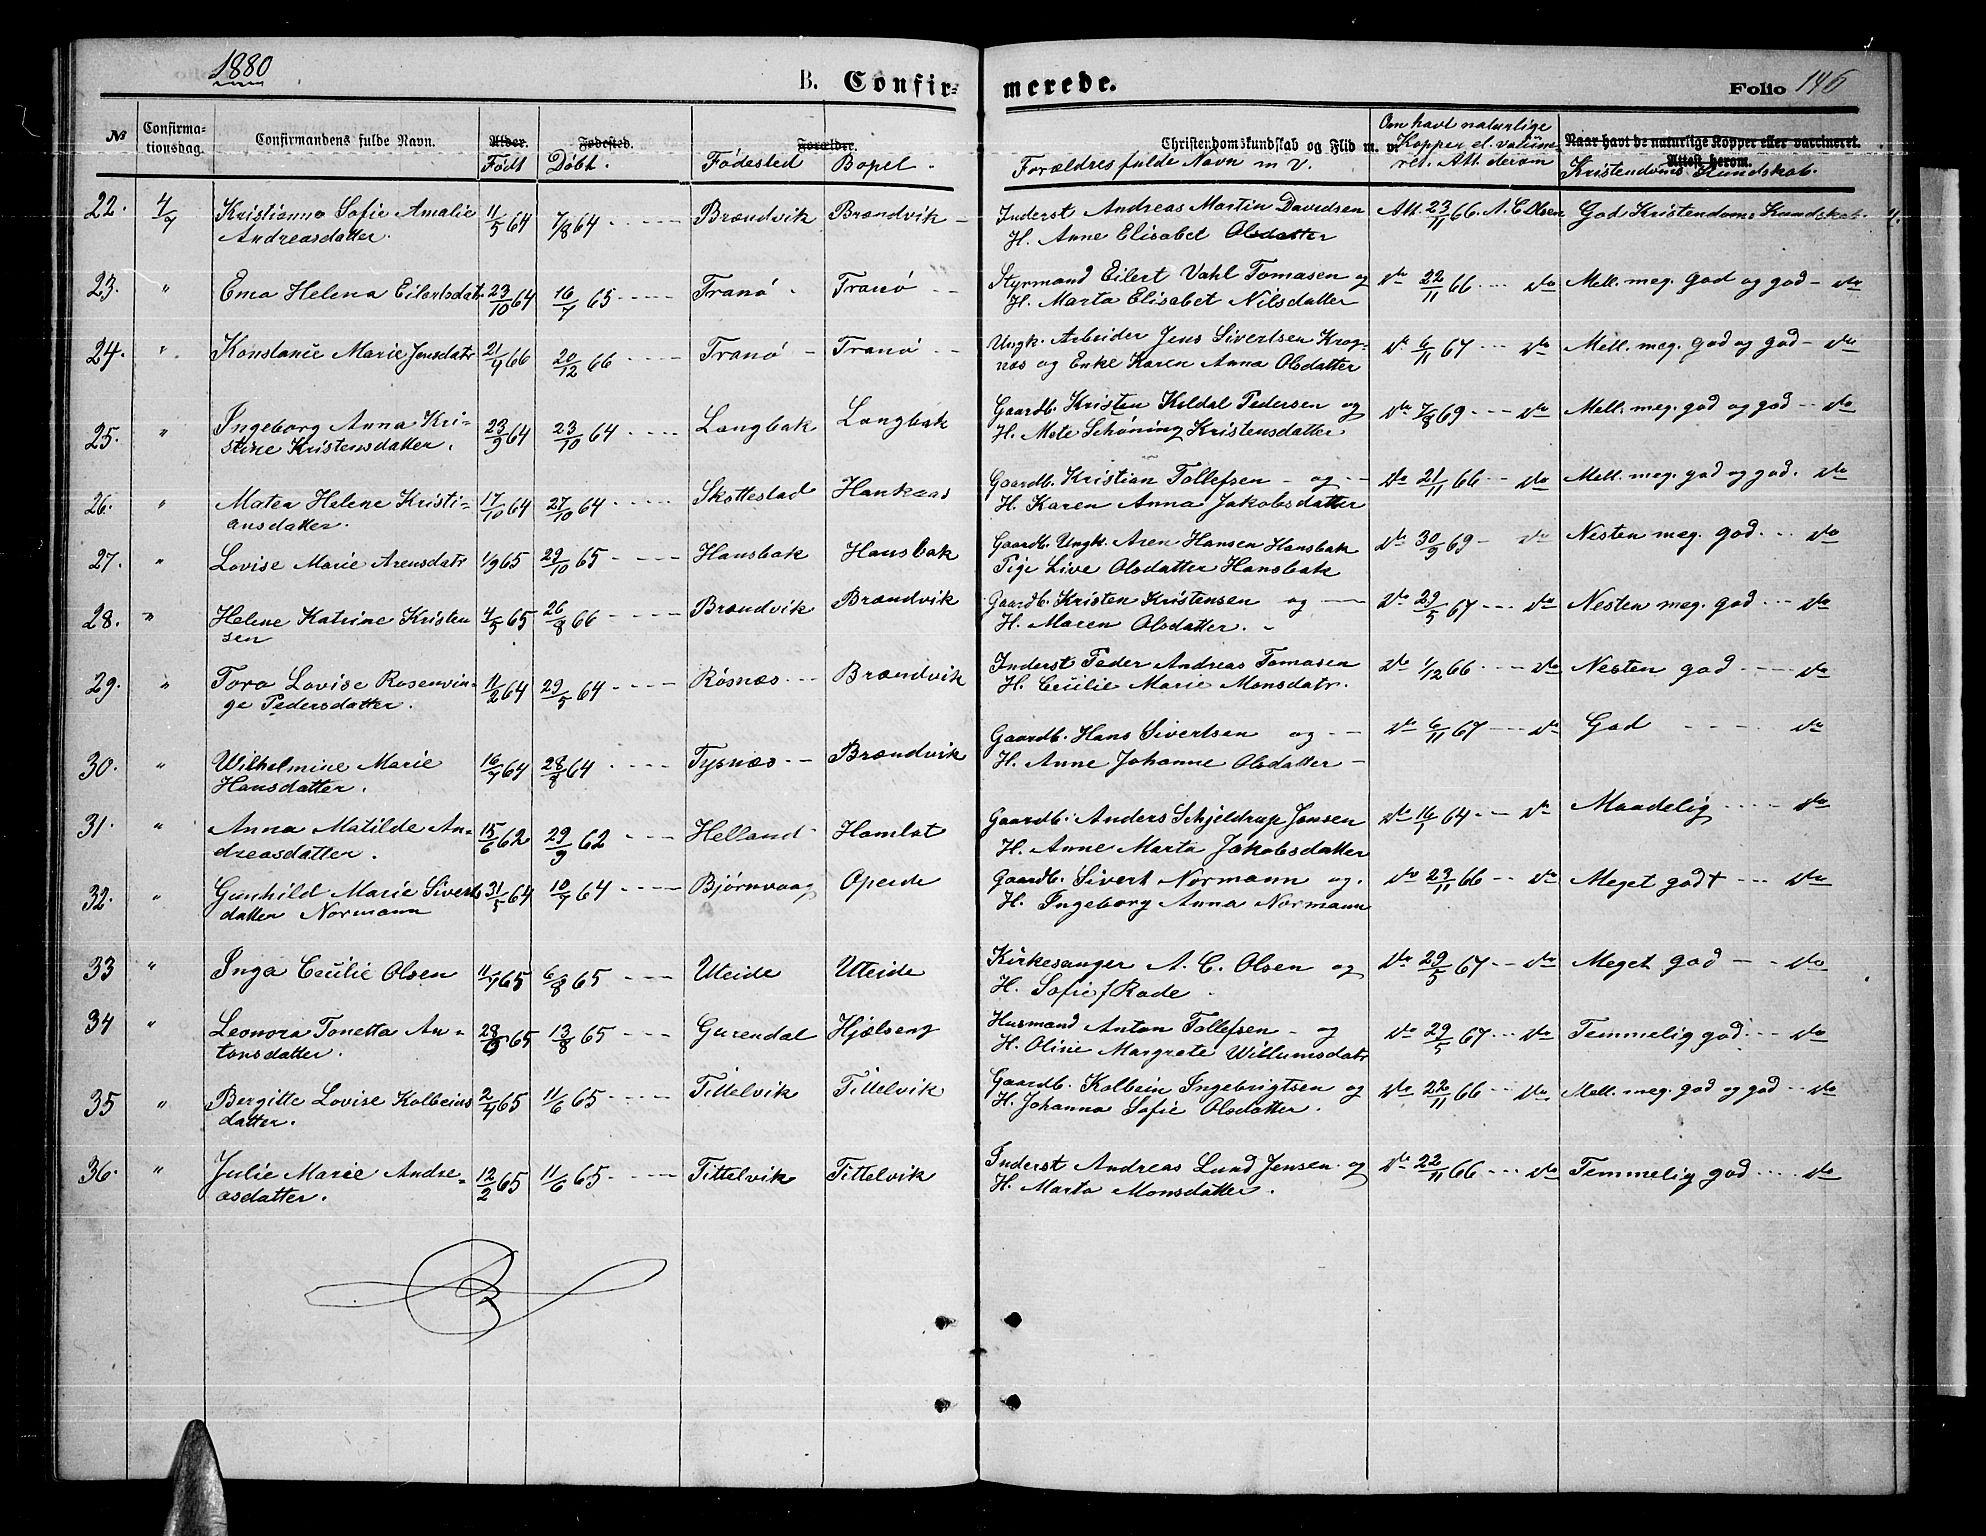 1880
B. Confir-
merede.
Folio 146
№
Confirma-
tionsdag.
Confirmandens fulde Navn.
Alder.
Født
Fødested.
Døbt.
Forældre.
Fødested
Bopel.
Christendomskundskab og Flid m. m.
Forældres fulde Navn m. v.
Om havt naturlige
Kopper el. vaksine-
ret. Att. derom
Naar havt de naturlige Kopper eller vaccineret.
Attest herom.
Kristendoms Kundskab.
22. 4/7 Kristianna Sofie Amalie 11/5 64 7/8 64 Brændvik Brændvik Inderst Andreas Martin Davidsen Att. 23/11 66. A. C. Olsen God Kristendoms Kundskab.
Andreasdatter. H. Anne Elisabet Olsdatter
23. " Ema Helena Eilertsdatr 23/10 64 16/7 65 Tranø Tranø Styrmand Eilert Vahl Tomasen og do 22/11 66 do Mell. meg. god og god do
H. Marta Elisabet Nilsdatter
24. " Konstanse Marie Jensdatr 21/4 66 20/12 66 Tranø Tranø Ungk. Arbeider Jens Sivertsen Krog- do 6/11 67 do Mell. meg. god og god do
næs og Enke Karen Anna Olsdatter
25. " Ingeborg Anna Kri- 23/9 64 23/10 64 Langbak Langbak Gaardb. Kristen Kildal Pedersen og do 7/8 69 do Mell. meg. god og god do
stine Kristensdatter. H. Mete Schøning Kristensdatter
26. " Matea Helene Kristi- 17/10 64 27/10 64 Skottestad Hankaas Gaardb. Kristian Tollefsen og do 21/11 66 do Mell. meg. god og god. do
ansdatter. H. Karen Anna Jakobsdatter
27. " Lovise Marie Arensdatr 1/9 65 29/10 65 Hansbak Hansbak Gaardb. Ungk. Aren Hansen Hansbak do 30/9 69 do Nesten meg. god do
Pige Live Olsdatter Hansbak
28. " Helene Katrine Kristen 4/5 65 26/8 66 Brændvik Brændvik Gaardb. Kristen Kristensen og do 29/5 67 do Nesten meg. god do
sen H. Maren Olsdatter.
29. " Tora Lovise Rosenvin- 11/2 64 29/5 64 Røsnæs Brændvik Inderst Peder Andreas Tomasen do 1/12 66 do Nesten god do
ge Pedersdatter. H. Cecilie Marie Monsdatr.
30. " Wilhelmine Marie 16/4 64 28/8 64 Tysnæs Brændvik Gaardb. Hans Sivertsen og do 6/11 67 do God do
Hansdatter. H. Anne Johanne Olsdatter
31. " Anna Matilde An- 15/6 62 29/9 62 Helland Hamlot Gaardb. Anders Schjeldrup Jansen do 16/1 64 do Maadelig do
dreasdatter. H. Anne Marta Jakobsdatter
32. " Gunhild Marie Siverts 31/5 64 10/7 64 Bjørnvaag Opeide Gaardb. Sivert Normann og do 23/11 66 do Meget godt do
datter Normann H. Ingeborg Anna Normann
33 " Inga Cecilie Olsen 11/4 65 6/8 65 Uteide Uteide Kirkesanger A. C. Olsen og do 29/5 67 do Meget god do
H. Sofie f. Rode
34 " Leonora Tonetta An- 28/5 65 13/8 65 Gurendal Hjælseng Husmand Anton Tollefsen og do 29/5 67 do Temmelig god do
tonsdatter. H. Oline Margrete Willumsdatr
35 " Bergitte Lovise Kolbeins 2/4 65 11/6 65 Tittelvik Tittelvik Gaardb. Kolbein Ingebrigtsen og do 22/11 66 do Mell. meg. god og god do
datter. H. Johanna Sofie Olsdatter.
36. " Julie Marie Andre- 12/2 65 11/6 65 Tittelvik Tittelvik Inderst Andreas Lund Jensen og do 22/11 66 do Temmelig god do
asdatter. H. Marta Monsdatter.